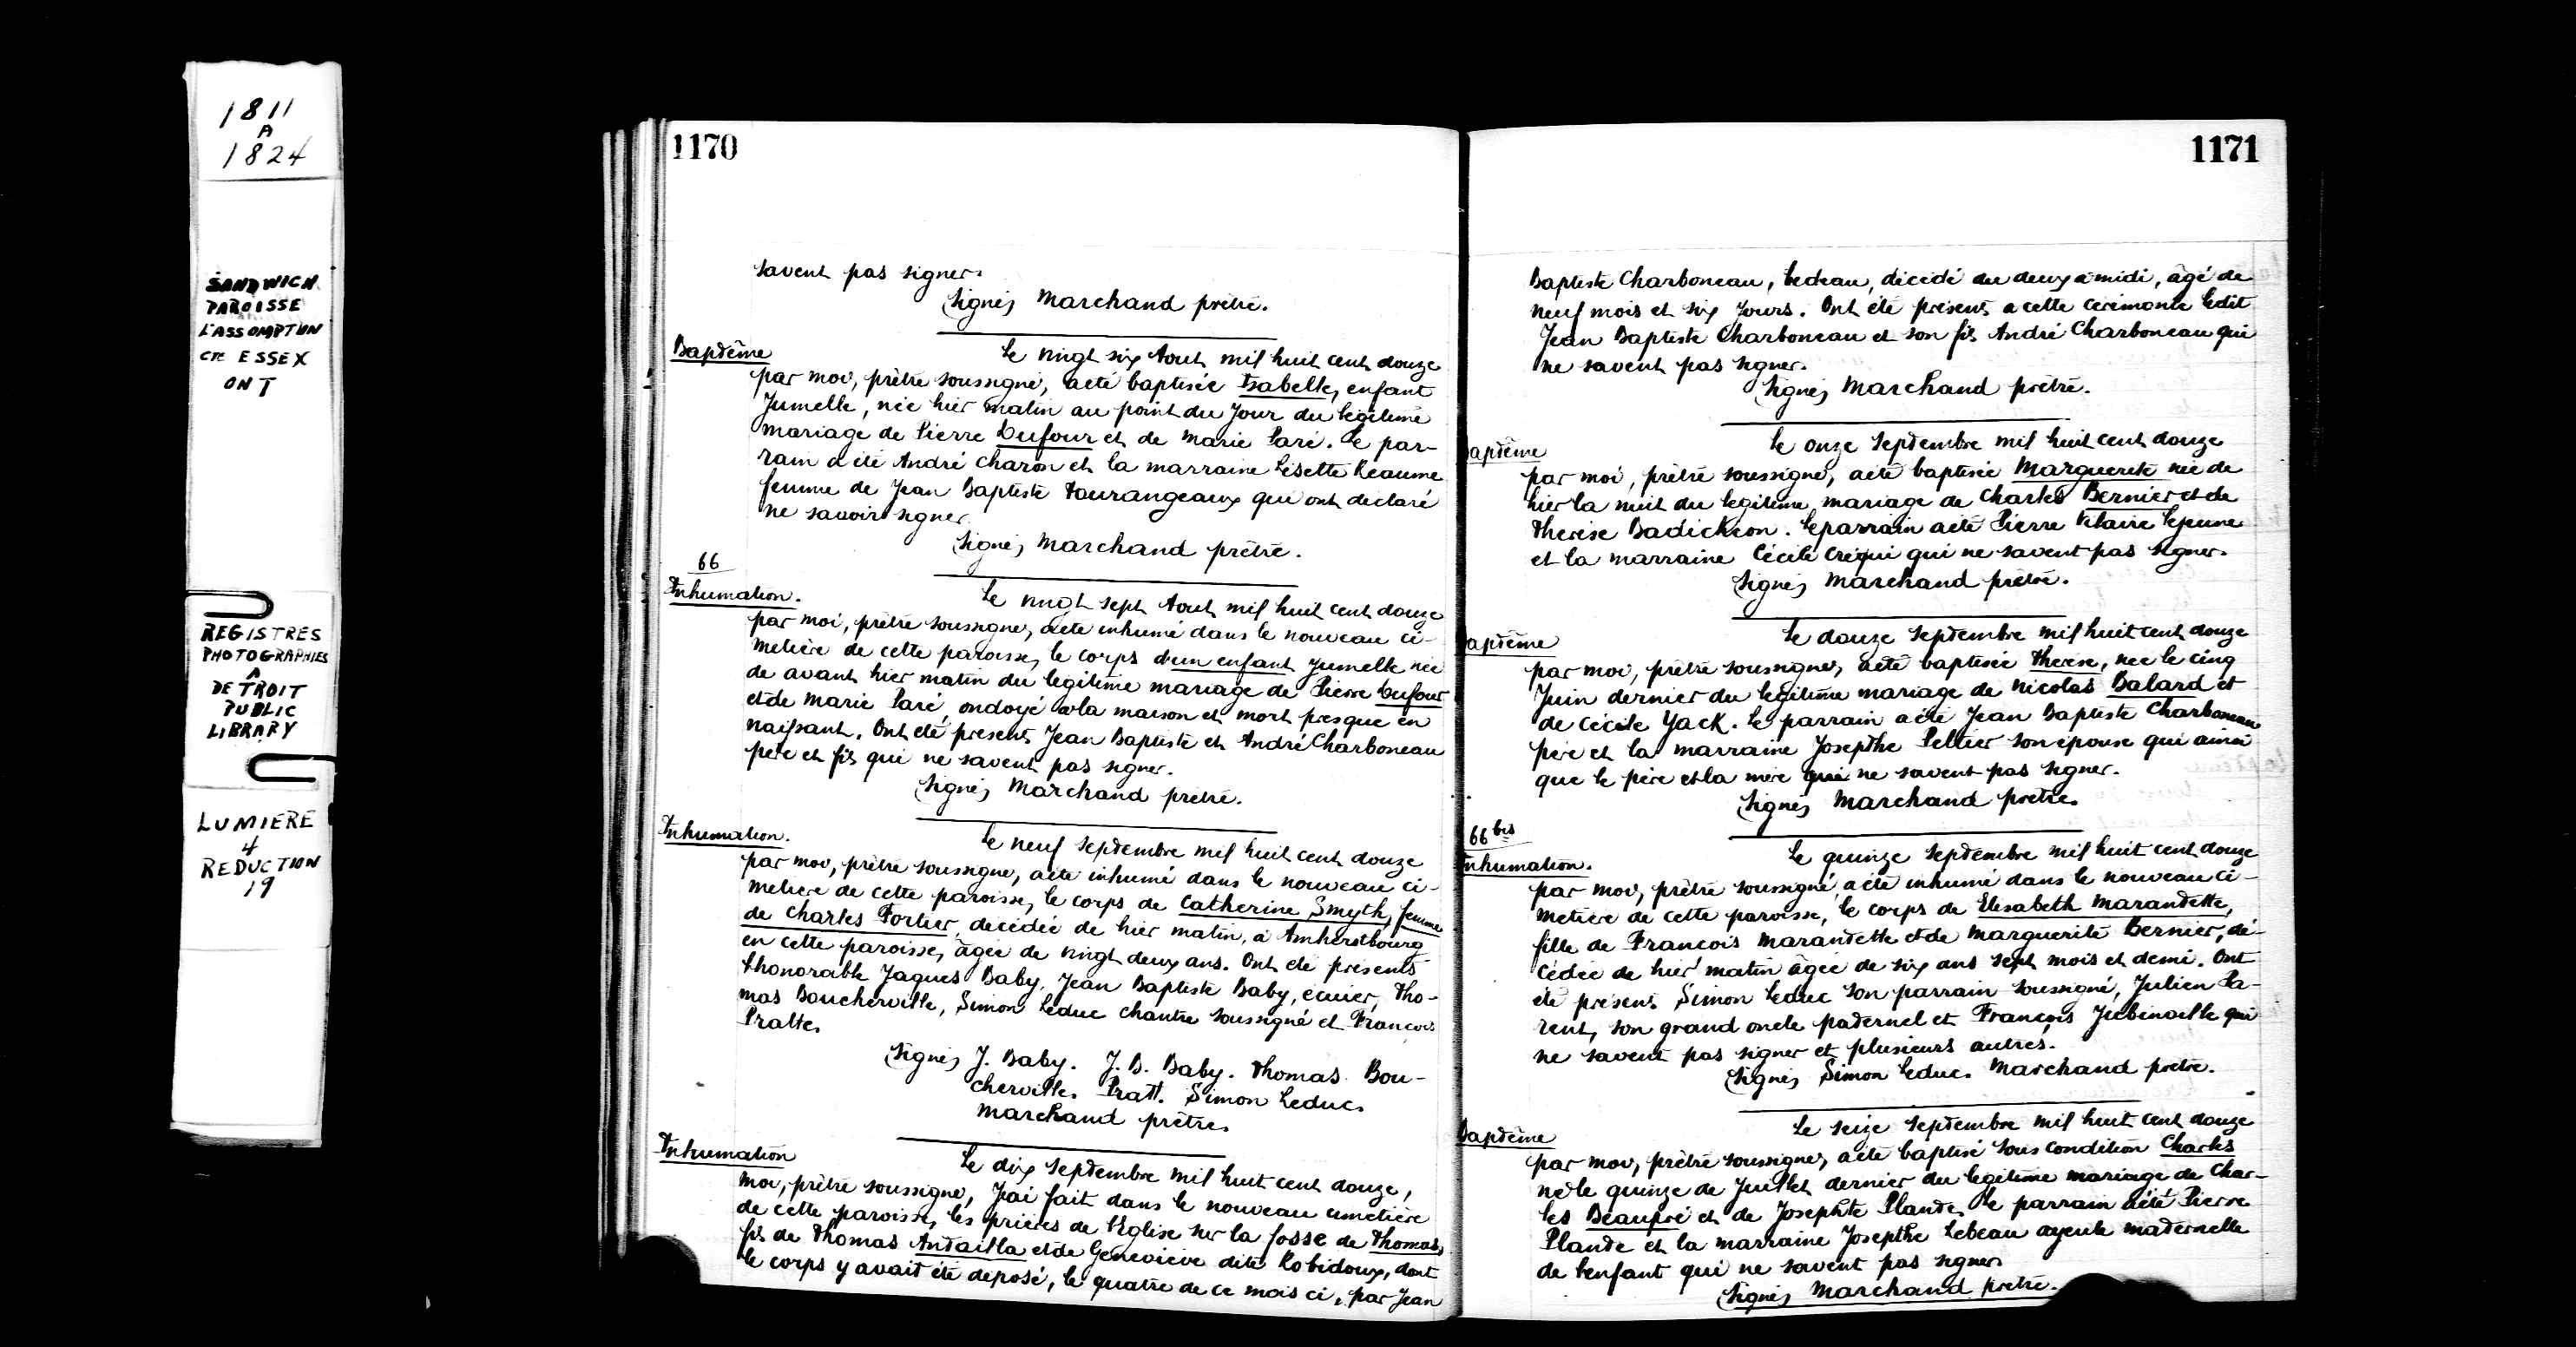 1811
A
1824
SANDWICH
PAROISSE
L'ASSOMPTION
CTE ESSEX
ONT
REGISTRES
PHOTOGRAPHIES
A
DETROIT
PUBLIC
LIBRARY
LUMIERE
4
REDUCTION
19
1170
savent pas signer.
Signés Marchand prêtre.
Baptême
Le vingt six Aout mil huit cent douze
par moi, prêtre soussigné, a été baptisée Isabelle, enfant
Jumelle, née hier matin au point du Jour du légitime
mariage de Pierre Dufour et de Marie Paré. Le par-
rain a été André Charon et la marraine Lisette Reaume
femme de Jean Baptiste Tourangeaux qui ont declaré
ne savoir signer.
Signés Marchand prêtre.
66
Inhumation.
Le vingt sept Aout mil huit cent douze
par moi, prêtre soussigné, a été inhumé dans le nouveau ci-
metière de cette paroisse, le corps d'un enfant Jumelle née
de avant hier matin du légitime mariage de Pierre Dufour
et de Marie Paré, ondoyé a la maison et mort presque en
naissant. Ont été present Jean Baptiste et André Charboneau
père et fils qui ne savent pas signer.
Signés Marchand prêtre.
Inhumation.
Le neuf Septembre mil huit cent douze
par moi, prêtre soussigné, a été inhumé dans le nouveau ci-
metière de cette paroisse, le corps de Catherine Smyth, femme
de Charles Fortier, décédée de hier matin, à Amherstbourg
en cette paroisse, âgée de vingt deux ans. Ont été présents
l'honorable Jaques Baby, Jean Baptiste Baby, écuier, Tho-
mas Boucherville, Simon Leduc chantre soussigné et François
Pratte.
Signés J. Baby. J. B. Baby. Thomas Bou-
cherville. Pratt. Simon Leduc.
Marchand prêtre.
Inhumation
Le dix Septembre mil huit cent douze,
moi, prêtre soussigné, J'ai fait dans le nouveau cimetière
de cette paroisse, les prières de l'Eglise sur la fosse de Thomas,
fils de Thomas Antailla et de Geneviève dite Robidoux, dont
le corps y avait été déposé, le quatre de ce mois ci, par Jean
1171
Baptiste Charboneau, bedeau, décédé du deux à midi, âgé de
neuf mois et six Jours. Ont été présent a cette cérémonie ledit
Jean Baptiste Charboneau et son fils André Charboneau qui
ne savent pas signer.
Signés Marchand prêtre.
aptême
Le onze Septembre mil huit cent douze
par moi, prêtre soussigné, a été baptisée Marguerite née de
hier la nuit du légitime mariage de Charles Bernier et de
Therese Badichon. Le parrain a été Pierre Vilaire lejeune
et la marraine Cécile Créqui qui ne savent pas signer.
Signés Marchand prêtre.
aptême
Le douze Septembre mil huit cent douze
par moi, prêtre soussigné, a été baptisée Therese, née le cinq
Juin dernier du légitime mariage de Nicolas Balard et
de Cécile Yack. Le parrain a été Jean Baptiste Charboneau
père et la marraine Josepthe Peltier son épouse qui ainsi
que le père et la mère qui ne savent pas signer.
Signés Marchand prêtre.
66 bis
Inhumation.
Le quinze Septembre mil huit cent douze
par moi, prêtre soussigné, a été inhumé dans le nouveau ci-
metière de cette paroisse, le corps de Elisabeth Marandette,
fille de Francois Marandette et de Marguerite Bernier, dé-
cédée de hier matin âgée de six ans sept mois et demi. Ont
été présent Simon Leduc son parrain soussigné, Julien Pa-
rent, son grand oncle paternel et François Jubinoille qui
ne savent pas signer et plusieurs autres.
Signés Simon Leduc. Marchand prêtre.
Baptême
Le seize Septembre mil huit cent douze
par moi, prêtre soussigné, a été baptisé sous condition Charles
né le quinze de Juillet dernier du légitime mariage de Char-
les Beaupré et de Josephte Plande. Le parrain a été Pierre
Plande et la marraine Josepthe Lebeau ayeule maternelle
de l'enfant qui ne savent pas signer.
Signés Marchand prêtre.